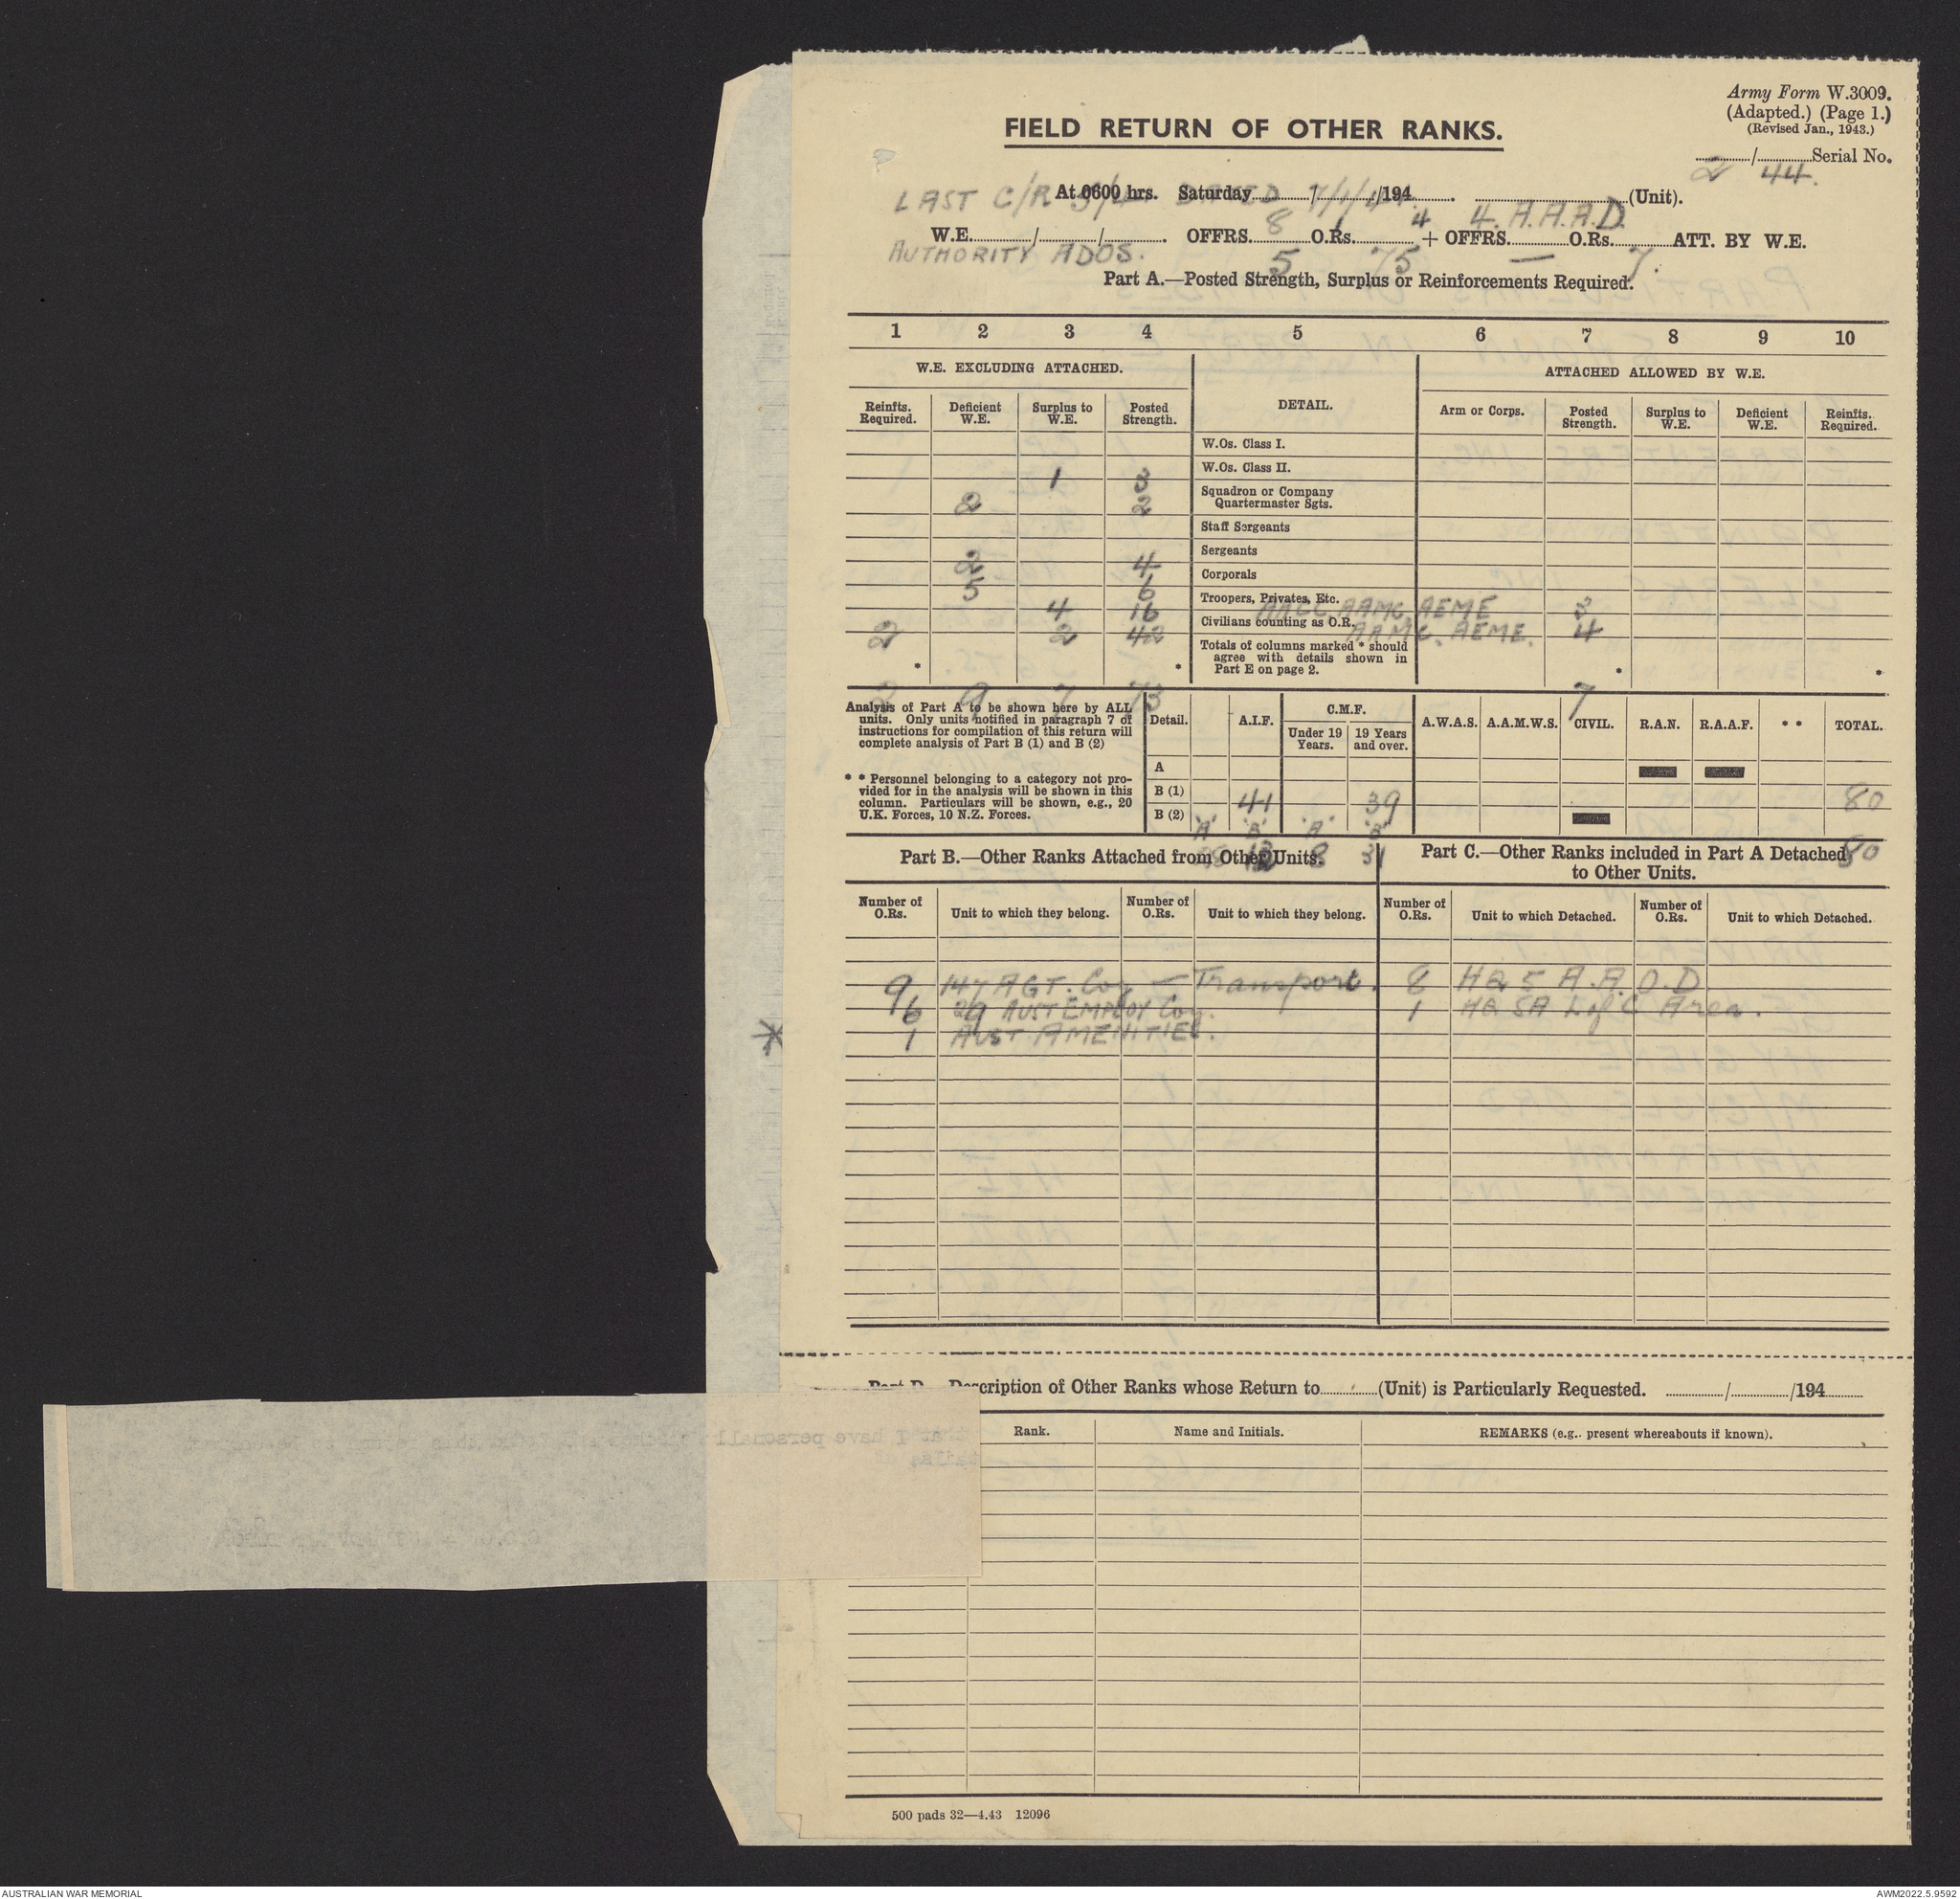 Army Form W.3009.
(Adapted.) (Page 1.)
(Revised Jan., 1943.)
FIELD RETURN OF OTHER RANKS.
2 / 44. Serial No.
LAST C/R DATED 7/1/44.
At 0600 hrs. Saturday 8 / 1 /194 4 . 4. A.A.A.D. (Unit).
W.E. / / . OFFRS. 5 O.Rs. 75 + OFFRS. — O.Rs. 7. ATT. BY W.E.
AUTHORITY ADOS.
Part A.—Posted Strength, Surplus or Reinforcements Required.
1 2 3 4 5 6 7 8 9 10
W.E. EXCLUDING ATTACHED. DETAIL. ATTACHED ALLOWED BY W.E.
Reinfts. Required. Deficient W.E. Surplus to W.E. Posted Strength. Arm or Corps. Posted Strength. Surplus to W.E. Deficient W.E. Reinfts. Required.
W.Os. Class I.
W.Os. Class II.
1 3
Squadron or Company Quartermaster Sgts.
2 2
Staff Sergeants
Sergeants
2 4
Corporals
5 6
Troopers, Privates, Etc.
4 16 AACC. AAMC. AEME 3
Civilians counting as O.R.
2 2 42 AAMC. AEME. 4
Totals of columns marked * should agree with details shown in Part E on page 2.
* * * *
9 7 73 7
Analysis of Part A to be shown here by ALL units. Only units notified in paragraph 7 of instructions for compilation of this return will complete analysis of Part B (1) and B (2)
* * Personnel belonging to a category not provided for in the analysis will be shown in this column. Particulars will be shown, e.g., 20 U.K. Forces, 10 N.Z. Forces.
Detail. A.I.F. C.M.F. A.W.A.S. A.A.M.W.S. CIVIL. R.A.N. R.A.A.F. * * TOTAL.
Under 19 Years. 19 Years and over.
A
B (1)
41 39 80
B (2)
'A' 'B' 'A' 'B'
8 31 80
Part B.—Other Ranks Attached from Other Units.
Part C.—Other Ranks included in Part A Detached to Other Units.
Number of O.Rs. Unit to which they belong. Number of O.Rs. Unit to which they belong. Number of O.Rs. Unit to which Detached. Number of O.Rs. Unit to which Detached.
9 147 AGT. Coy — Transport. 8 HQ 5 A.A.O.D.
6 29 AUST EMPLOY Coy. 1 HQ SA L of C Area.
* 1 AUST. AMENITIES.
Description of Other Ranks whose Return to (Unit) is Particularly Requested. / /194
Rank. Name and Initials. REMARKS (e.g.. present whereabouts if known).
500 pads 32—4.43 12096
AUSTRALIAN WAR MEMORIAL
AWM2022.5.9592